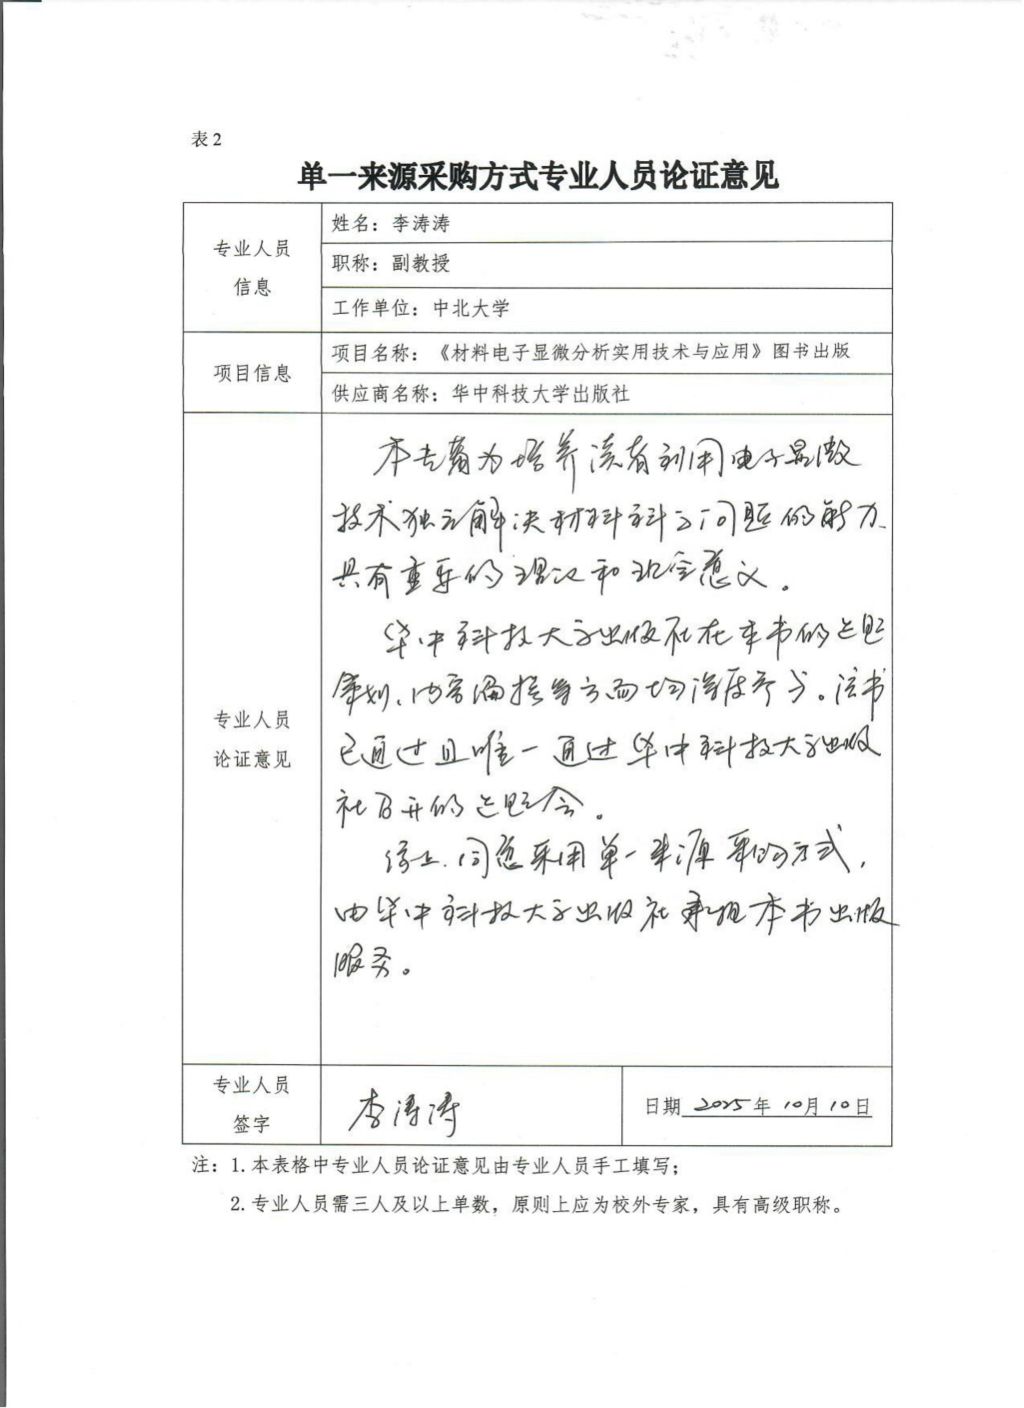 表2
单一来源采购方式专业人员论证意见
专业人员
信息
姓名：李涛涛
职称：副教授
工作单位：中北大学
项目信息
项目名称：《材料电子显微分析实用技术与应用》图书出版
供应商名称：华中科技大学出版社
专业人员
论证意见
本专著为培养读者利用电子显微
技术独立解决材料科学问题的能力
具有重要的理论和现实意义。
华中科技大学出版社在本书的选题
策划、内容编排等方面均深度参与。该书
已通过且唯一通过华中科技大学出版
社召开的选题会。
综上，同意采用单一来源采购方式，
由华中科技大学出版社承担本书出版
服务。
专业人员
签字
李涛涛
日期 2025年10月10日
注：1.本表格中专业人员论证意见由专业人员手工填写；
2.专业人员需三人及以上单数，原则上应为校外专家，具有高级职称。